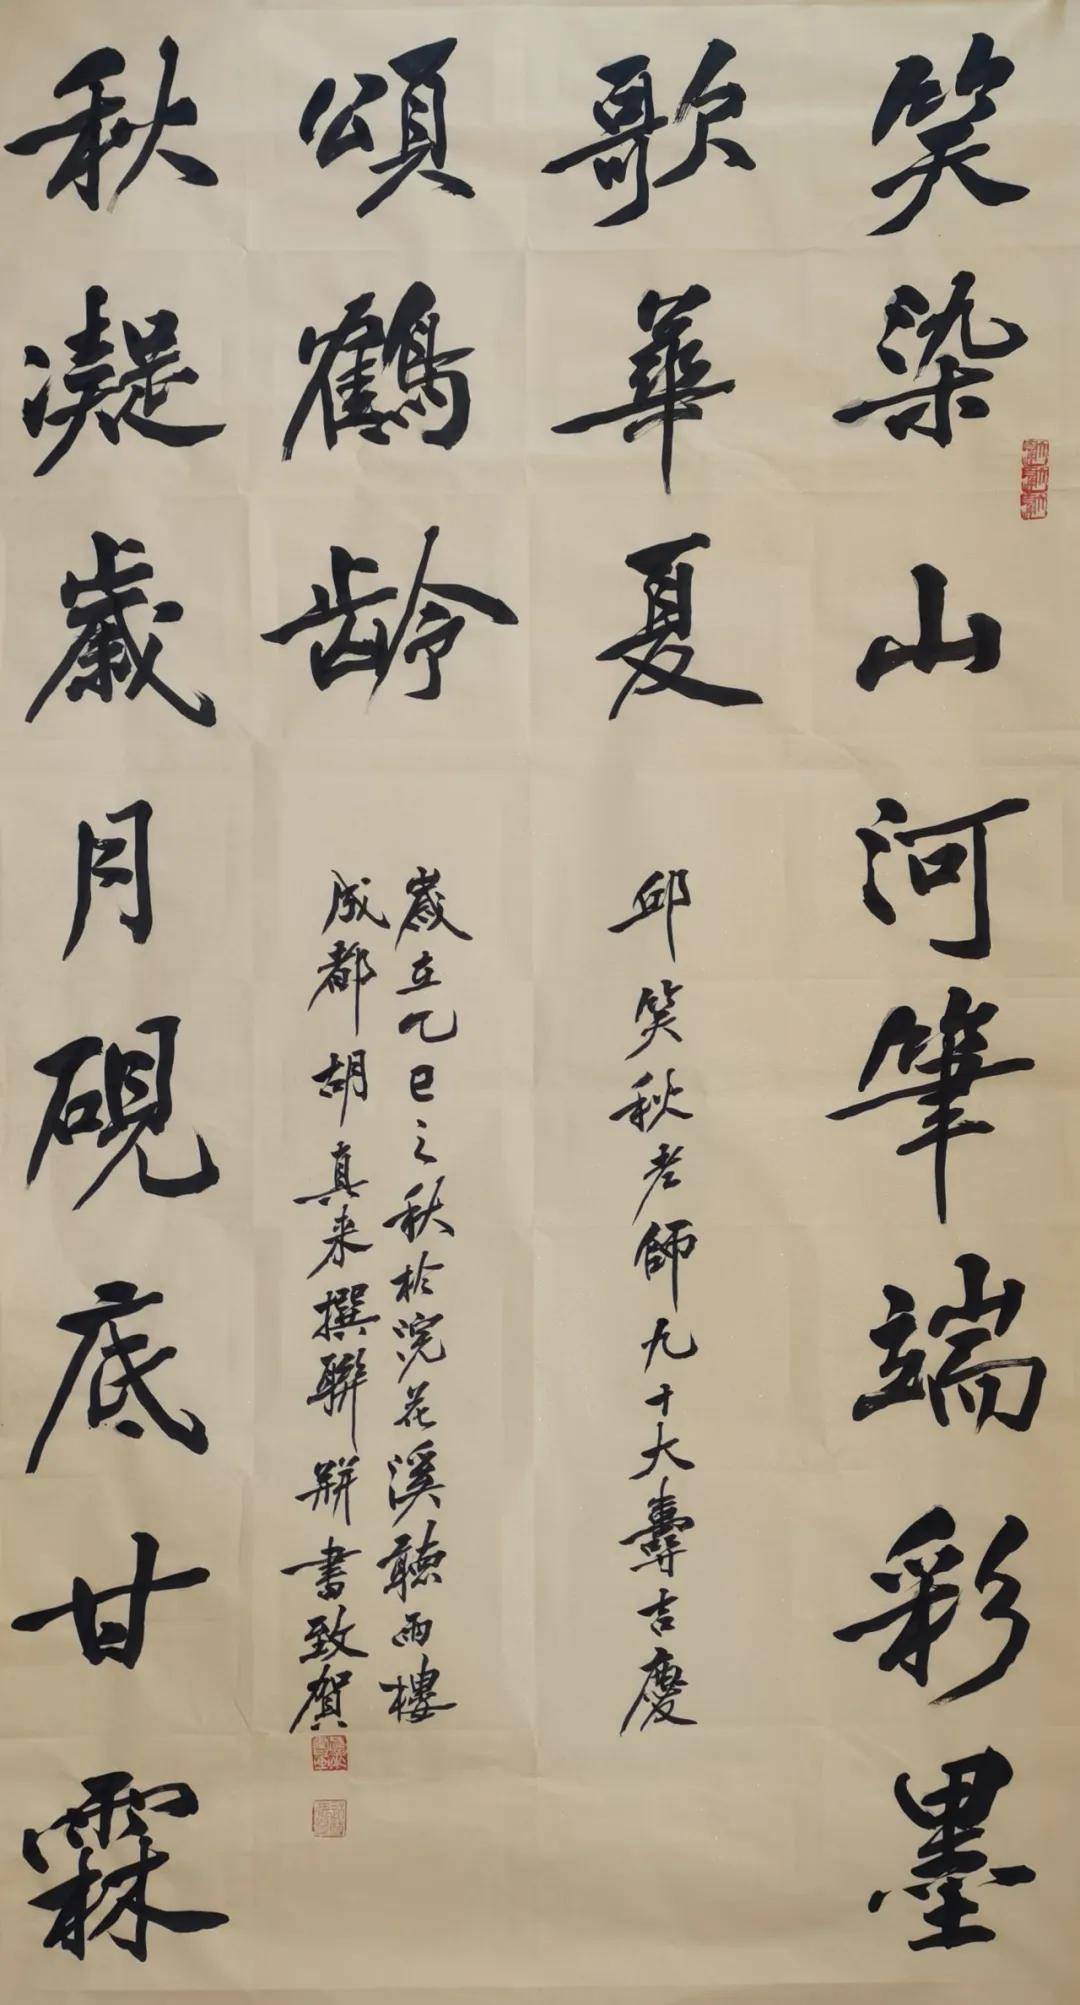 笑染山河筆端彩墨
歌華夏
邱笑秋老師九十大壽吉慶
秋凝歲月硯底甘霖
頌鶴齡
歲在乙巳之秋於浣花溪聽雨樓
成都胡真来撰聯並書致賀